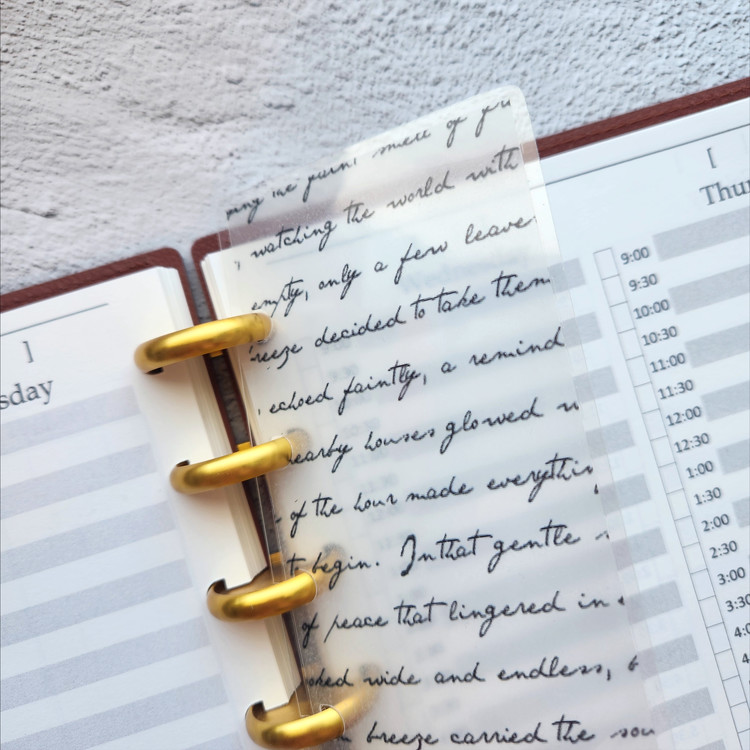 ]
sday
smell of
watching the world with
empty, only a few leave
reeze decided to take them
echoed faintly, a remind
nearby houses glowed w
of the hour made everythin
to begin. In that gentle
of peace that lingered in
oked wide and endless,
breeze carried the sou
[
Thur
9:00
9:30
10:00
10:30
11:00
11:30
12:00
12:30
1:00
1:30
2:00
2:30
3:00
3:30
4:0
4: